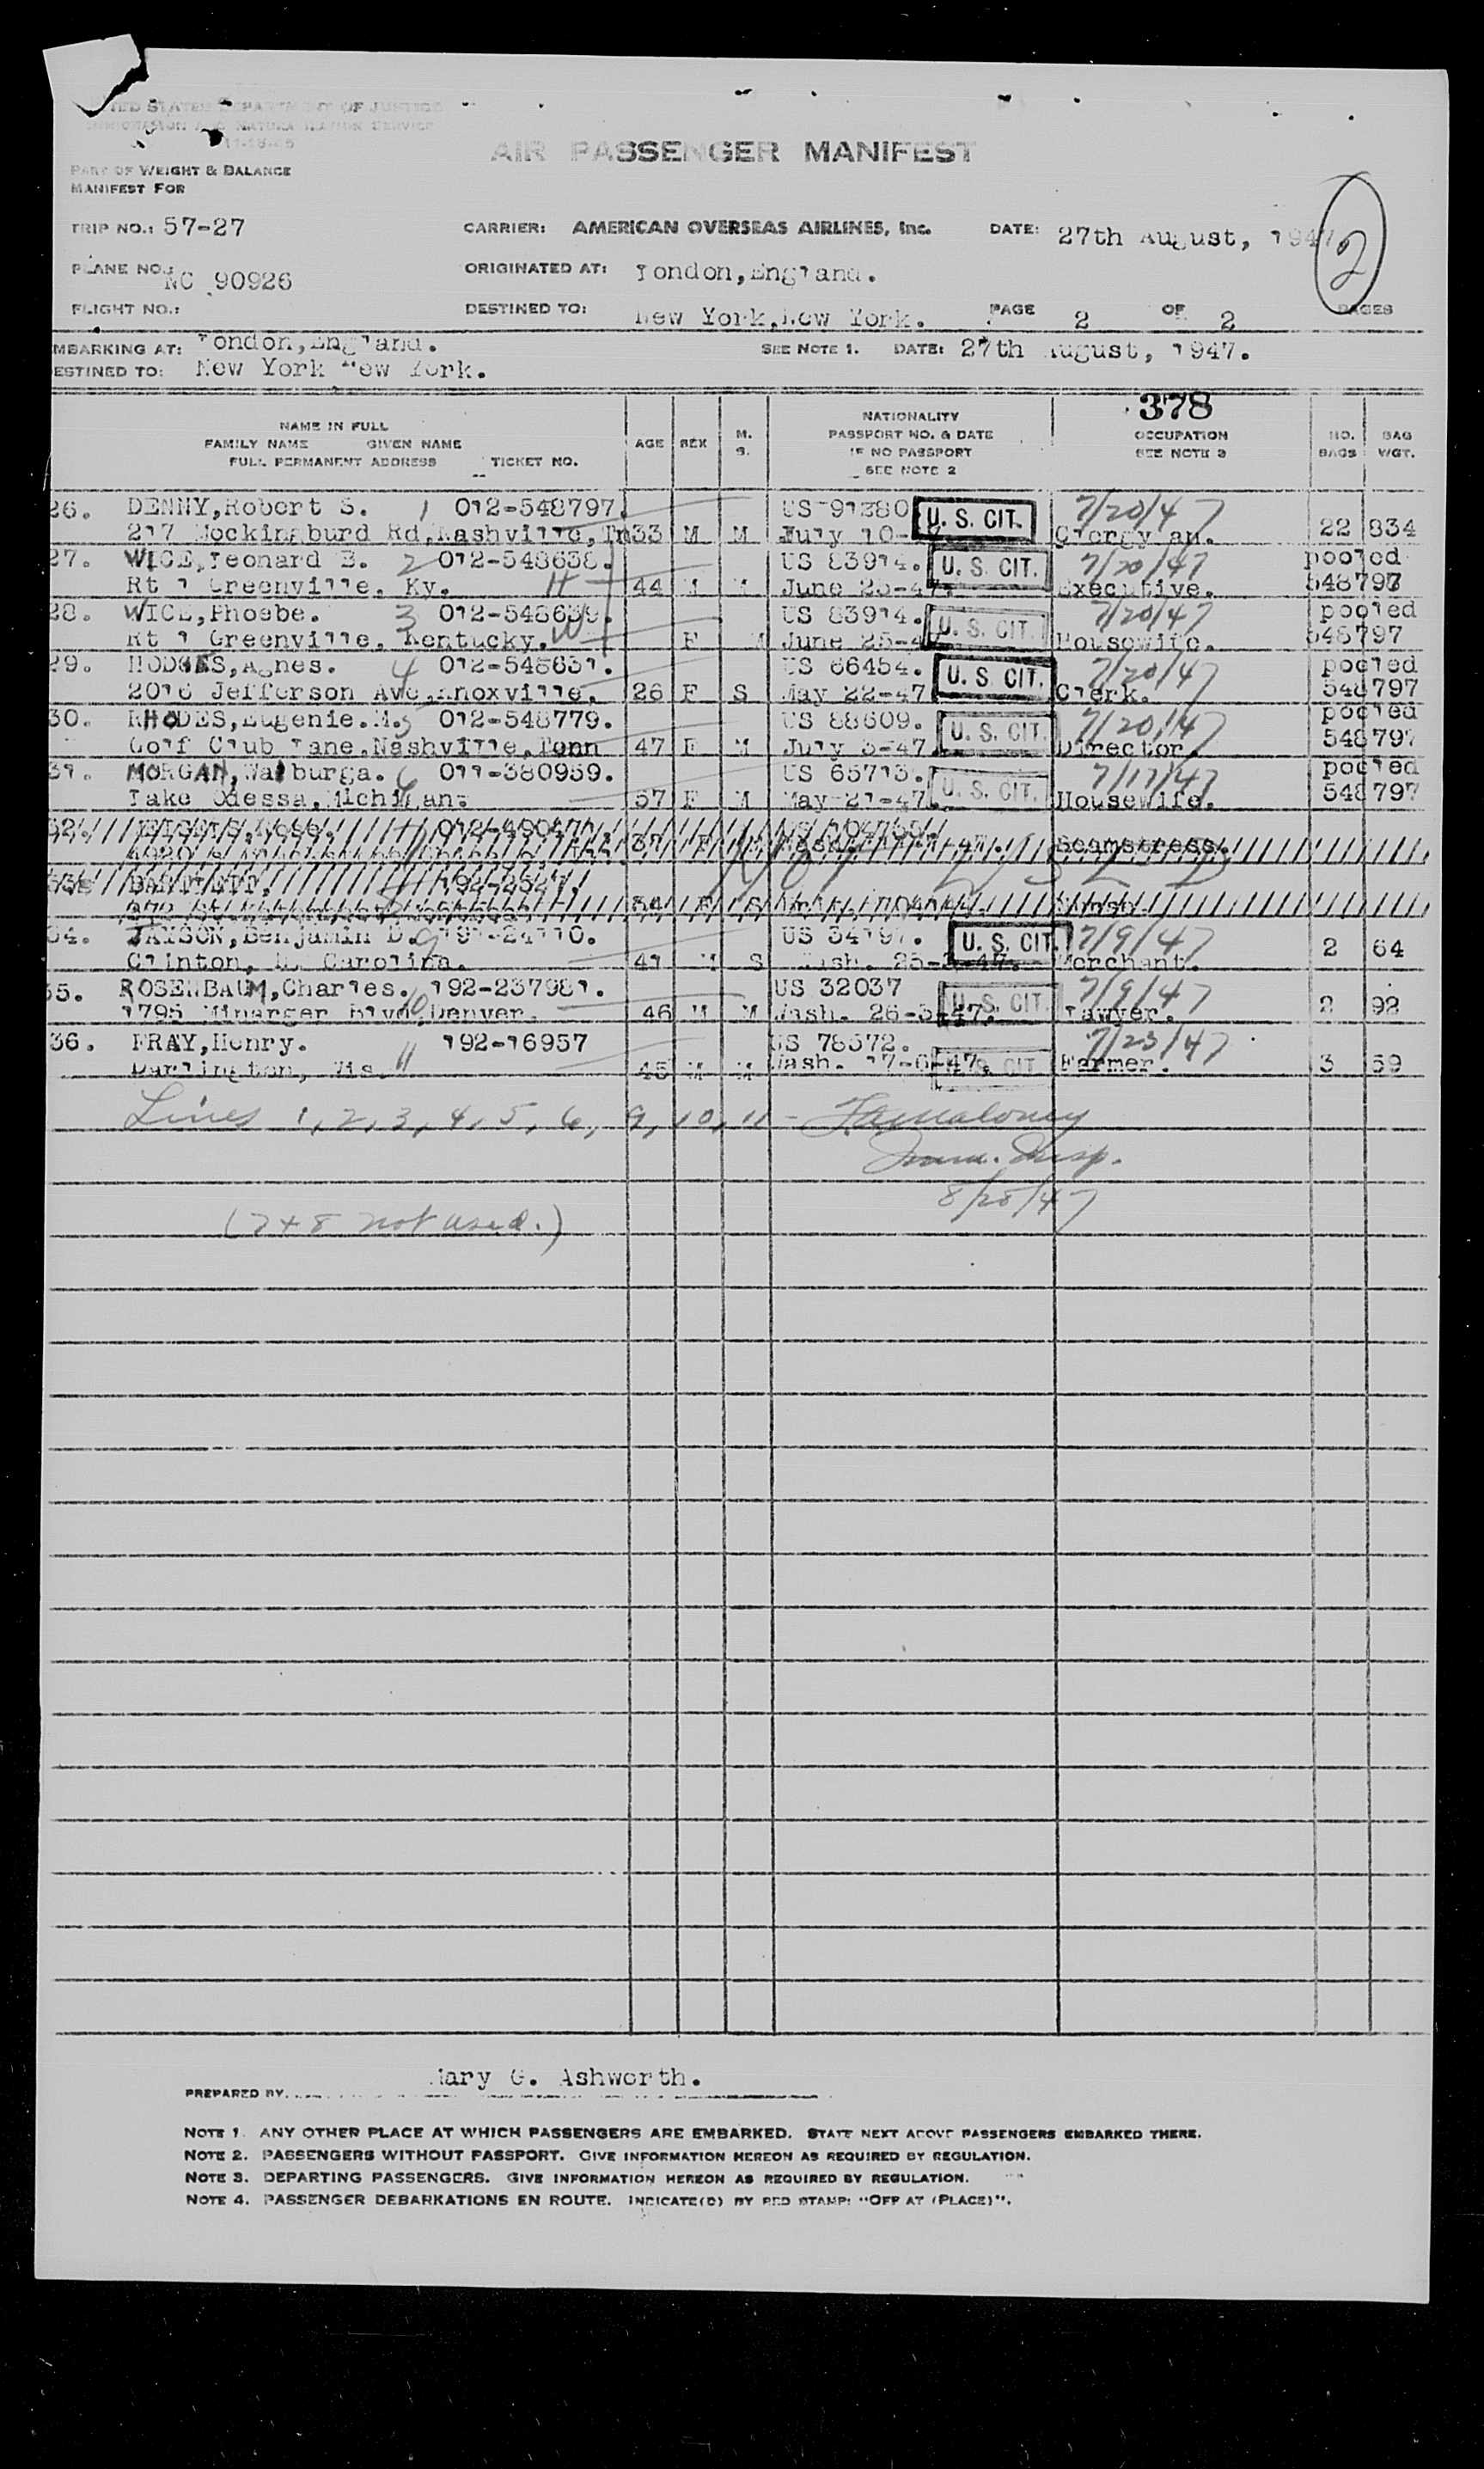 UNITED STATES DEPARTMENT OF JUSTICE
IMMIGRATION AND NATURALIZATION SERVICE
AIR PASSENGER MANIFEST
PART OF WEIGHT & BALANCE
MANIFEST FOR
TRIP NO.: 57-27 CARRIER: AMERICAN OVERSEAS AIRLINES, Inc. DATE: 27th August, 1947
2
PLANE NO.: NC 90926 ORIGINATED AT: London,England.
FLIGHT NO.: DESTINED TO: New York,New York. PAGE 2 OF 2 PAGES
EMBARKING AT: London,England. SEE NOTE 1. DATE: 27th August, 1947.
DESTINED TO: New York New York.
378
NAME IN FULL
FAMILY NAME GIVEN NAME
FULL PERMANENT ADDRESS TICKET NO.
AGE SEX M. S.
NATIONALITY
PASSPORT NO. & DATE
IF NO PASSPORT
SEE NOTE 2
OCCUPATION
SEE NOTE 3
NO. BAGS BAG WGT.
26. DENNY,Robert S. 1 012-548797. US 91380 U. S. CIT. 7/20/47
217 Mockingburd Rd,Nashville,Tn 33 M M July 10- Clergyman. 22 834
27. WICE,Leonard B. 2 012-548638. US 83914. U. S. CIT. 7/20/47 pooled
Rt 1 Greenville, Ky. H 44 M M June 25-47. Executive. 548797
28. WICE,Phoebe. 3 012-548639. US 83914. U. S. CIT. 7/20/47 pooled
Rt 1 Greenville, Kentucky. W F M June 25-4 Housewife. 548797
29. HODGES,Agnes. 4 012-548631. US 66454. U. S. CIT. 7/20/47 pooled
2016 Jefferson Ave,Knoxville. 26 F S May 22-47 Clerk. 548797
30. RHODES,Eugenie.M. 5 012-548779. US 88609. U. S. CIT. 7/20/47 pooled
Golf Club Lane,Nashville,Tenn 47 F M July 3-47. Director. 548797
31. MORGAN,Walburga. 6 011-380959. US 65713. U. S. CIT. 7/17/47 pooled
Lake Odessa,Michigan. 57 F M May 21-47. Housewife. 548797
32. 37 F Seamstress.
33. BARTLETT, 34 F S Nurse.
34. JAYSON,Benjamin D. 9 191-24110. US 34197. U. S. CIT. 7/9/47
Clinton, N. Carolina. 41 M S Wash. 25-3-47. Merchant. 2 64
35. ROSENBAUM,Charles. 10 192-237981. US 32037 U. S. CIT. 7/9/47
1795 Blvd,Denver. 46 M M Wash. 26-3-47. Lawyer. 2 92
36. FRAY,Henry. 192-16957 US 78572. 7/23/47
Darlington, Wis. 11 45 M M Wash. 17-6-47. U. S. CIT. Farmer. 3 59
Lines 1, 2, 3, 4, 5, 6, 9, 10, 11 - Maloney
Imm. Insp.
8/28/47
(7 + 8 not used.)
PREPARED BY Mary G. Ashworth.
NOTE 1. ANY OTHER PLACE AT WHICH PASSENGERS ARE EMBARKED. STATE NEXT ABOVE PASSENGERS EMBARKED THERE.
NOTE 2. PASSENGERS WITHOUT PASSPORT. GIVE INFORMATION HEREON AS REQUIRED BY REGULATION.
NOTE 3. DEPARTING PASSENGERS. GIVE INFORMATION HEREON AS REQUIRED BY REGULATION.
NOTE 4. PASSENGER DEBARKATIONS EN ROUTE. INDICATE(D) BY RED STAMP: "OFF AT (PLACE)".